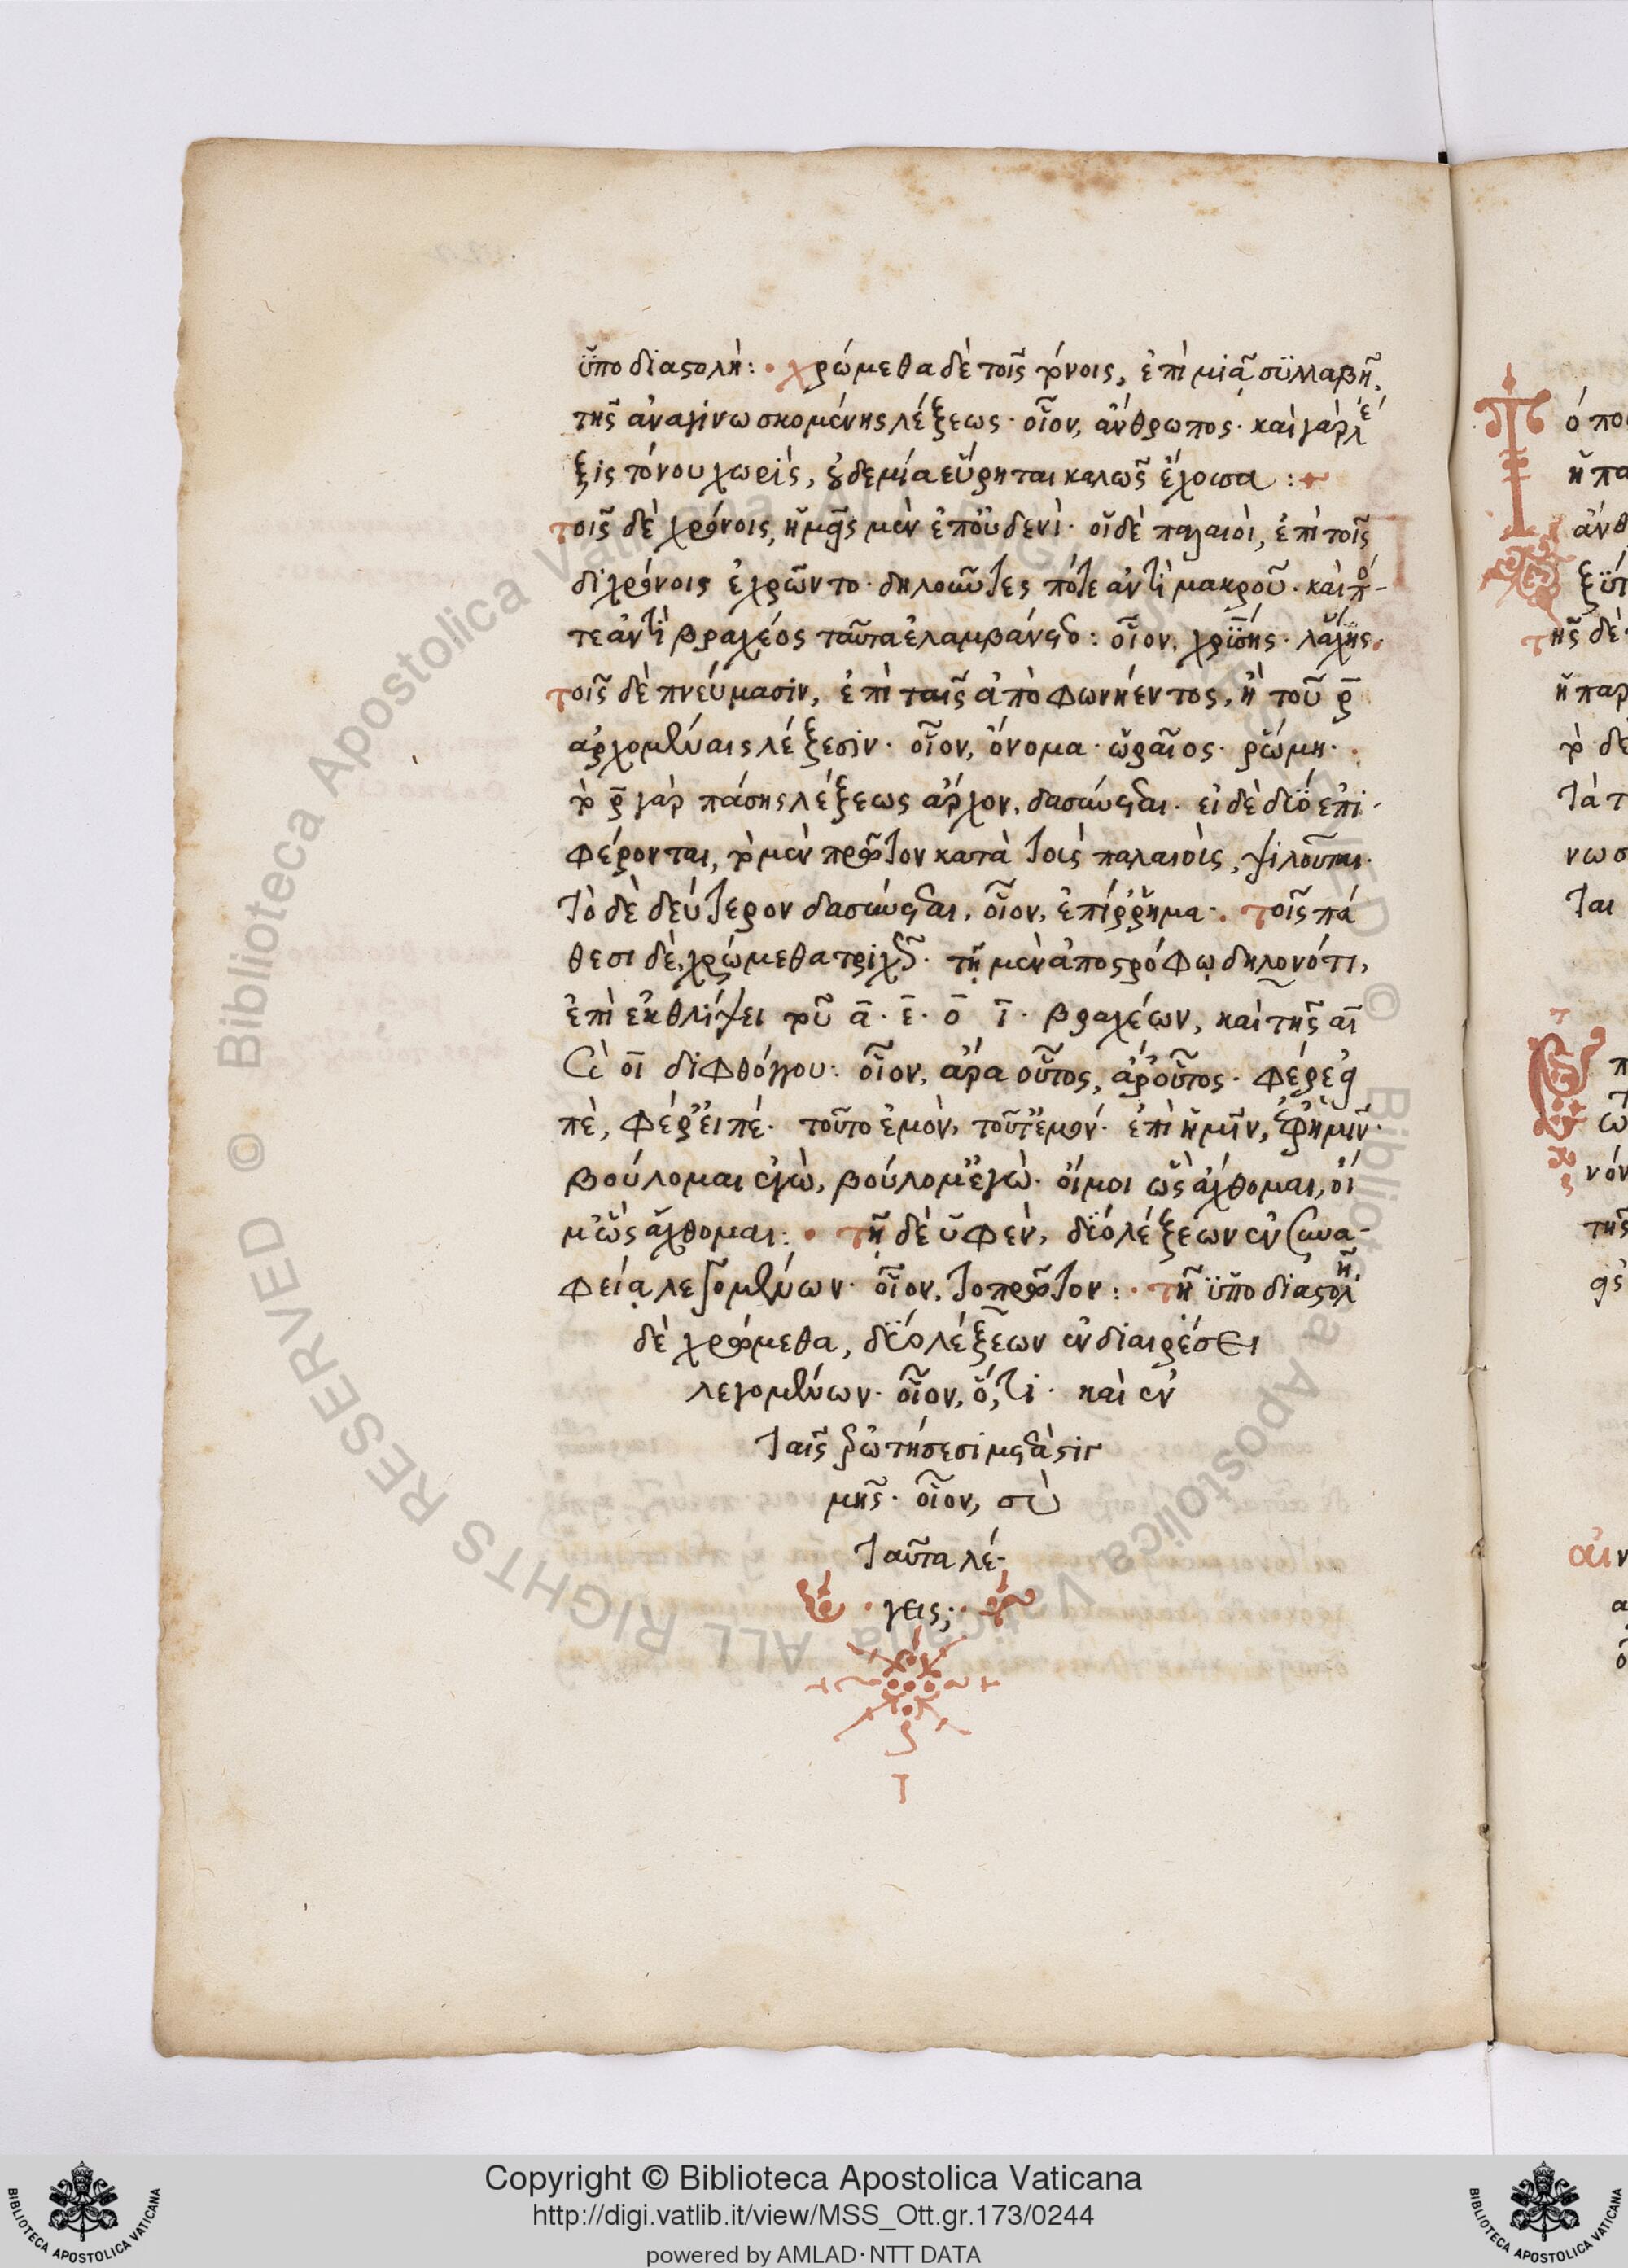 ὑποδιαστολή: · χρώμεθα δὲ τοῖς τόνοις, ἐπὶ μιᾷ συλλαβῇ,
τῆς ἀναγινωσκομένης λέξεως · οἷον, ἄνθρωπος · καὶ γὰρ λέ
ξις τόνου χωρὶς, οὐδεμία εὕρηται καλῶς ἔχουσα : +
τοῖς δὲ χρόνοις, ἡμεῖς μὲν ἐπ' οὐδενί · οἱ δὲ παλαιοὶ, ἐπὶ τοῖς
διχρόνοις ἐχρῶντο · δηλοῦντες πότε ἀντὶ μακροῦ · καὶ πό-
τε ἀντὶ βραχέος ταῦτα ἐλαμβάνετο : οἷον, χρύσης · λάχης ·
τοῖς δὲ πνεύμασιν, ἐπὶ ταῖς ἀπὸ φωνήεντος, ἢ τοῦ ρ̄
ἀρχομέναις λέξεσιν · οἷον, ὄνομα · ὡραῖος · ῥώμη ·
τὸ ρ̄ γὰρ πάσης λέξεως ἄρχον, δασύνεται · εἰ δὲ δύο ἐπι-
φέρονται, τὸ μὲν πρῶτον κατὰ τοὺς παλαιοὺς, ψιλοῦται ·
τὸ δὲ δεύτερον δασύνεται, οἷον, ἐπίῤῥημα · τοῖς πά
θεσι δὲ, χρώμεθα τριχῶς · τῇ μὲν ἀποστρόφῳ δηλονότι,
ἐπὶ ἐκθλίψει τοῦ ᾱ · ε̄ · ο̄ ῑ · βραχέων, καὶ τῆς αῑ
καὶ οῑ διφθόγγου : οἷον, ἄρα οὗτος, ἄρ' οὗτος · φέρε εἰ
πὲ, φέρ' εἰπέ · τοῦτο ἐμὸν, τοῦτ' ἐμόν · ἐπὶ ἡμῖν, ἐφ' ἡμῖν ·
βούλομαι ἐγὼ, βούλομ' ἐγώ · οἴμοι ὡς ἄχθομαι, οἴ
μ' ὡς ἄχθομαι : · τῇ δὲ ὑφὲν, δύο λέξεων ἐν συνα-
φείᾳ λεγομένων · οἷον, τοπρῶτον : · τῇ ὑποδιαστολῇ
δὲ χρώμεθα, δύο λέξεων ἐν διαιρέσει
λεγομένων · οἷον, ὅ,τι · καὶ ἐν
ταῖς ἐρωτήσεσι μετὰ στιγ
μῆς · οἷον, σὺ
ταῦτα λέ-
· γεις; ·
Copyright © Biblioteca Apostolica Vaticana
http://digi.vatlib.it/view/MSS_Ott.gr.173/0244
powered by AMLAD·NTT DATA